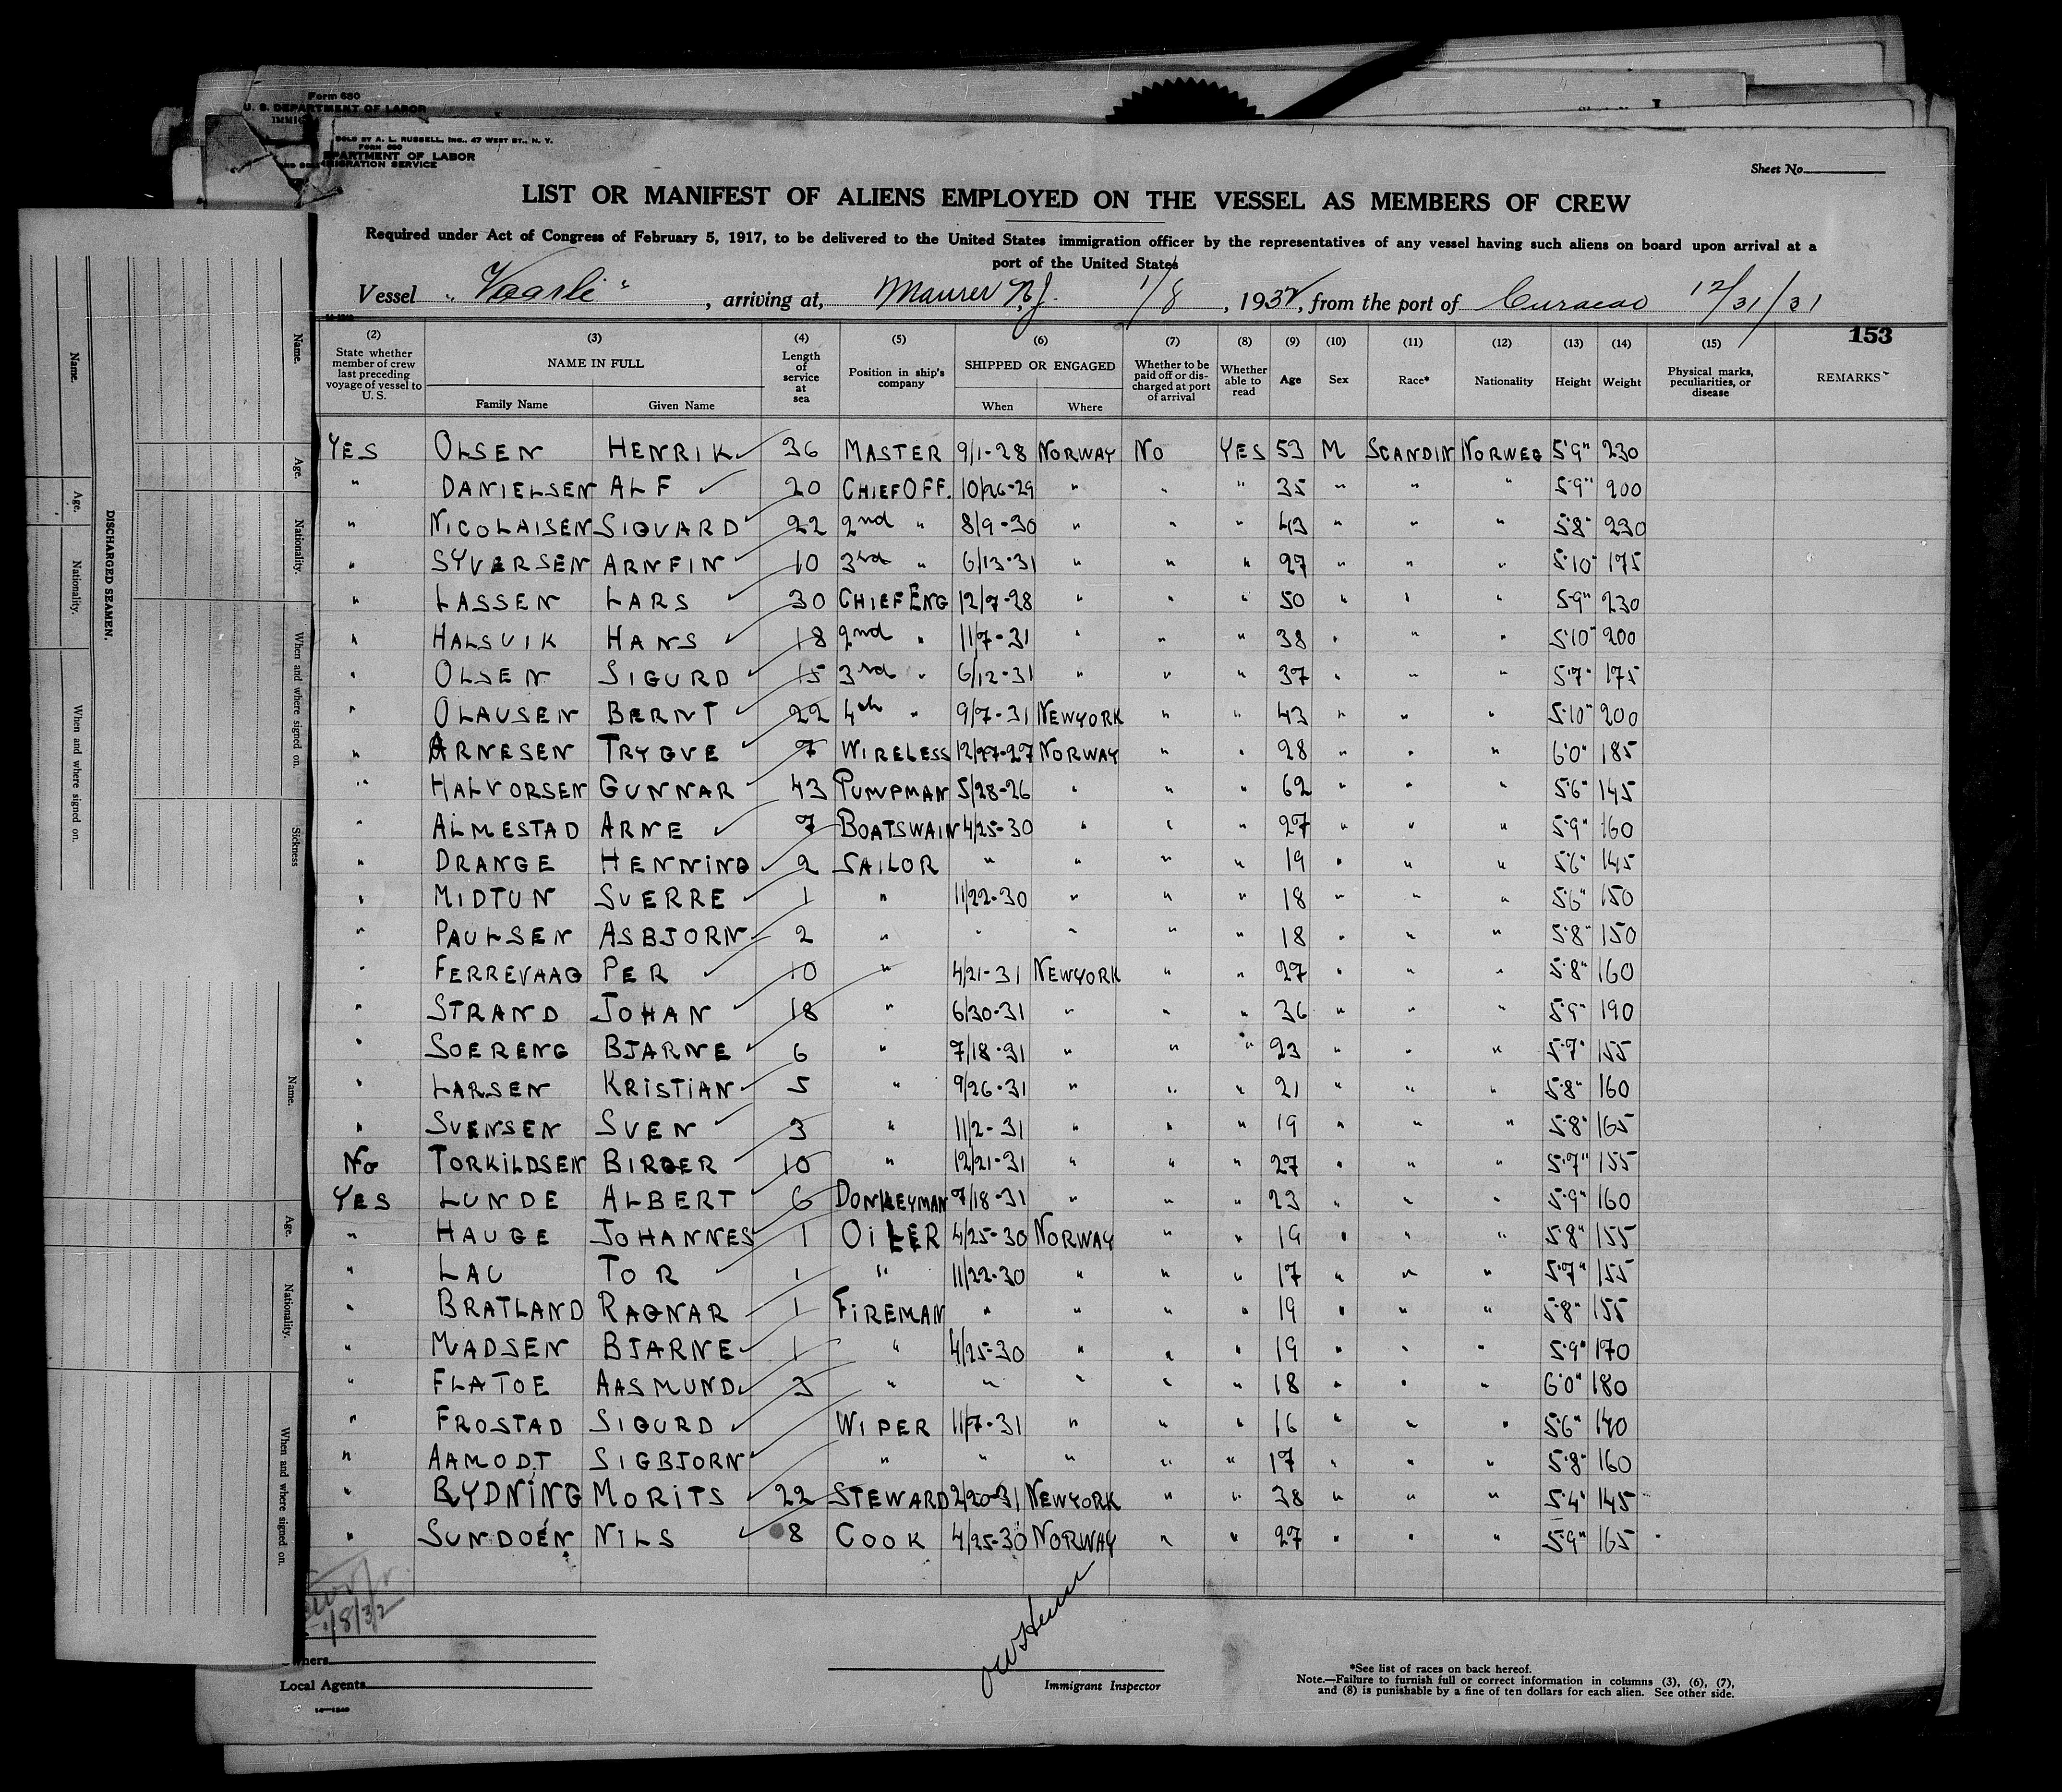 Form 680
U. S. DEPARTMENT OF LABOR
SOLD BY A. L. RUSSELL, INC., 47 WEST ST., N. Y.
FORM 680
DEPARTMENT OF LABOR
IMMIGRATION SERVICE
Sheet No.
LIST OR MANIFEST OF ALIENS EMPLOYED ON THE VESSEL AS MEMBERS OF CREW
Required under Act of Congress of February 5, 1917, to be delivered to the United States immigration officer by the representatives of any vessel having such aliens on board upon arrival at a
port of the United States
Vessel "Vaarli", arriving at, Maurer N.J. 1/8, 1932, from the port of Curacao 12/31/31
153
(2) (3) (4) (5) (6) (7) (8) (9) (10) (11) (12) (13) (14) (15)
State whether member of crew last preceding voyage of vessel to U. S. NAME IN FULL Family Name Given Name Length of service at sea Position in ship's company SHIPPED OR ENGAGED When Where Whether to be paid off or discharged at port of arrival Whether able to read Age Sex Race* Nationality Height Weight Physical marks, peculiarities, or disease REMARKS
YES OLSEN HENRIK 36 MASTER 9/1-28 NORWAY NO YES 53 M SCANDIN NORWEG 5'9" 230
" DANIELSEN ALF 20 CHIEF OFF. 10/26-29 " " " 35 " " " 5'9" 200
" NICOLAISEN SIGVARD 22 2nd " 8/9-30 " " " 43 " " " 5'8" 230
" SYVERSEN ARNFIN 10 3rd " 6/13-31 " " " 27 " " " 5'10" 175
" LASSEN LARS 30 CHIEF ENG 12/7-28 " " " 50 " " " 5'9" 230
" HALSVIK HANS 18 2nd " 11/7-31 " " " 38 " " " 5'10" 200
" OLSEN SIGURD 15 3rd " 6/12-31 " " " 37 " " " 5'7" 175
" OLAUSEN BERNT 22 4th " 9/7-31 NEWYORK " " 43 " " " 5'10" 200
" ARNESEN TRYGVE 7 WIRELESS 12/27-27 NORWAY " " 28 " " " 6'0" 185
" HALVORSEN GUNNAR 43 PUMPMAN 5/28-26 " " " 62 " " " 5'6" 145
" ALMESTAD ARNE 7 BOATSWAIN 4/25-30 " " " 27 " " " 5'9" 160
" DRANGE HENNING 2 SAILOR " " " " 19 " " " 5'6" 145
" MIDTUN SVERRE 1 " 11/22-30 " " " 18 " " " 5'6" 150
" PAULSEN ASBJORN 2 " " " " " 18 " " " 5'8" 150
" FERREVAAG PER 10 " 4/21-31 NEWYORK " " 27 " " " 5'8" 160
" STRAND JOHAN 18 " 6/30-31 " " " 36 " " " 5'9" 190
" SOERENG BJARNE 6 " 7/18-31 " " " 23 " " " 5'7" 155
" LARSEN KRISTIAN 5 " 9/26-31 " " " 21 " " " 5'8" 160
" SVENSEN SVEN 3 " 11/2-31 " " " 19 " " " 5'8" 165
No TORKILDSEN BIRGER 10 " 12/21-31 " " " 27 " " " 5'7" 155
YES LUNDE ALBERT 6 DONKEYMAN 7/18-31 " " " 23 " " " 5'9" 160
" HAUGE JOHANNES 1 OILER 4/25-30 NORWAY " " 19 " " " 5'8" 155
" LAU TOR 1 " 11/22-30 " " " 17 " " " 5'7" 155
" BRATLAND RAGNAR 1 FIREMAN " " " " 19 " " " 5'8" 155
" MADSEN BJARNE 1 " 4/25-30 " " " 19 " " " 5'9" 170
" FLATOE AASMUND 3 " " " " " 18 " " " 6'0" 180
" FROSTAD SIGURD WIPER 11/7-31 " " " 16 " " " 5'6" 140
" AAMODT SIGBJORN " " " " " 17 " " " 5'8" 160
" RYDNING MORITS 22 STEWARD 2/20-31 NEWYORK " " 38 " " " 5'4" 145
" SUNDOEN NILS 8 COOK 4/25-30 NORWAY " " 27 " " " 5'9" 165
1/8/32
Owners
Local Agents
Immigrant Inspector
*See list of races on back hereof.
Note.—Failure to furnish full or correct information in columns (3), (6), (7),
and (8) is punishable by a fine of ten dollars for each alien. See other side.
DISCHARGED SEAMEN.
Name. Age. Nationality. When and where signed on.
Name. Age. Nationality. When and where signed on. Sickness
Name. Age. Nationality. When and where signed on.